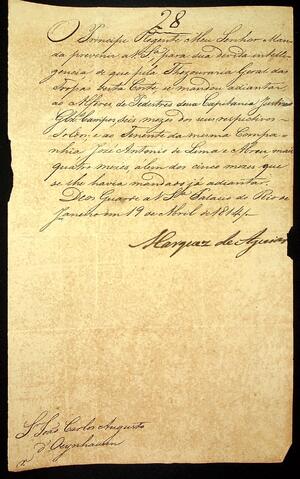 28
O Principe Regente Meu Senhor Man
da prevenir a V. Sª. para sua devida intelli
gencia de que pela Thezouraria Geral das
Tropas desta Corte se mandou adiantar,
ao Alferes de Pedestres dessa Capitania
Campos seis mezes dos seus respectivos
Soldos: e ao Tenente da mesma Compa
nhia José Antonio de Lima e Abreu mais
quatro mezes, alem dos cinco mezes que
se lhe havia mandado já adiantar.
Deos Guarde a V. Sª. Palacio do Rio de
Janeiro em 19 de Abril de 1814
Marquez de Aguiar
Sr. João Carlos Augusto
d'Oeynhausen